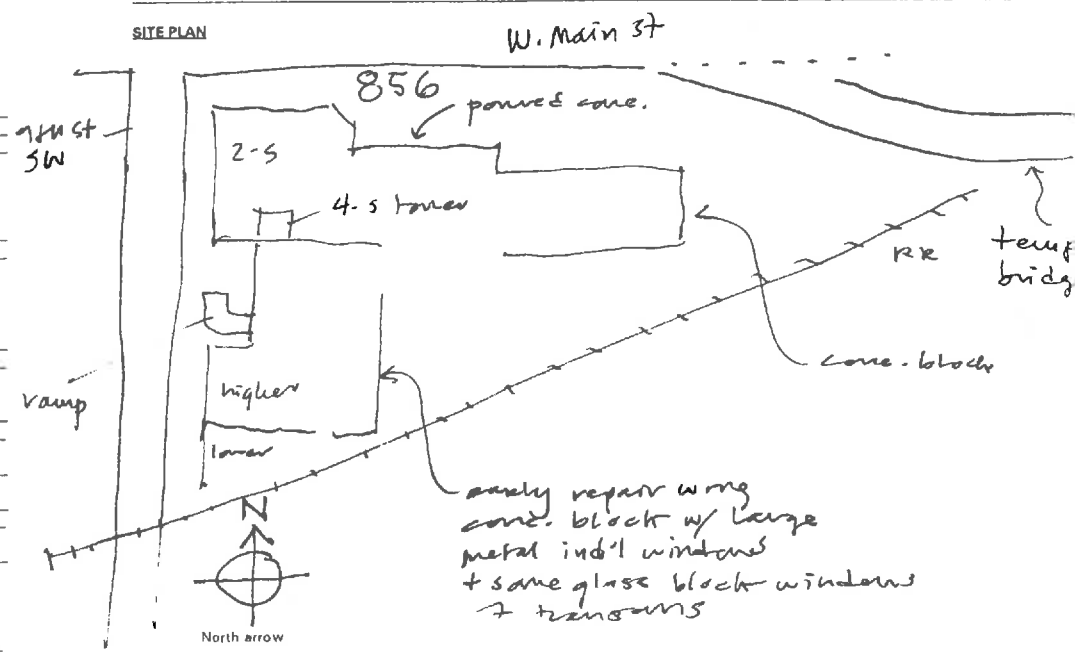 SITE PLAN
W. Main St
856
poured conc.
9th St
SW
2-S
4-s tower
RR
temp
bridg
conc. block
ramp
higher
lower
early repair wing
conc. block w/ large
metal ind'l windows
+ some glass block windows
+ transoms
N
North arrow